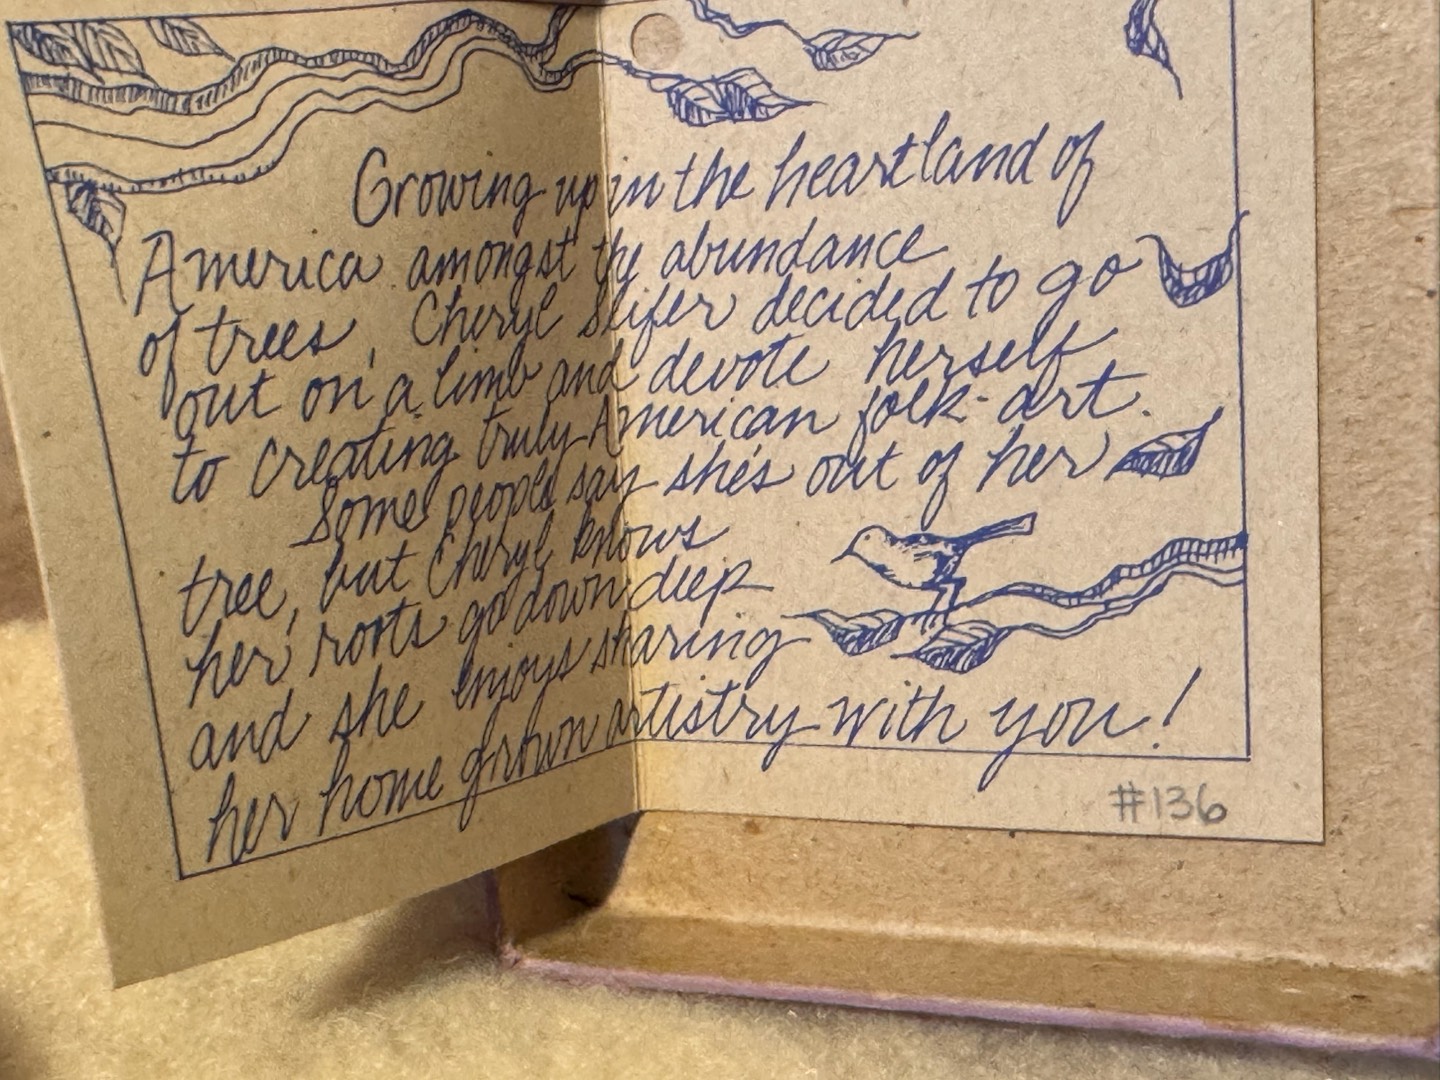 Growing up in the heartland of
America amongst the abundance
of trees, Cheryl Seifer decided to go
out on a limb and devote herself
to creating truly American folk-art.
Some people say she's out of her
tree, but Cheryl knows
her roots go down deep
and she enjoys sharing
her home grown artistry with you!
#136